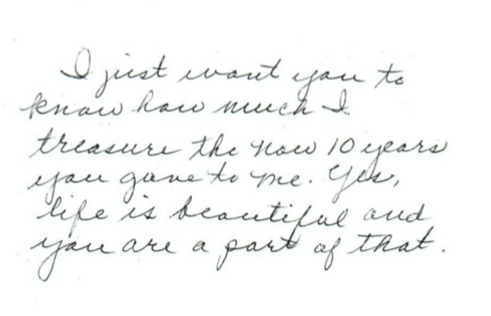 I just want you to
know how much I
treasure the now 10 years
you gave to me. Yes,
life is beautiful and
you are a part of that.